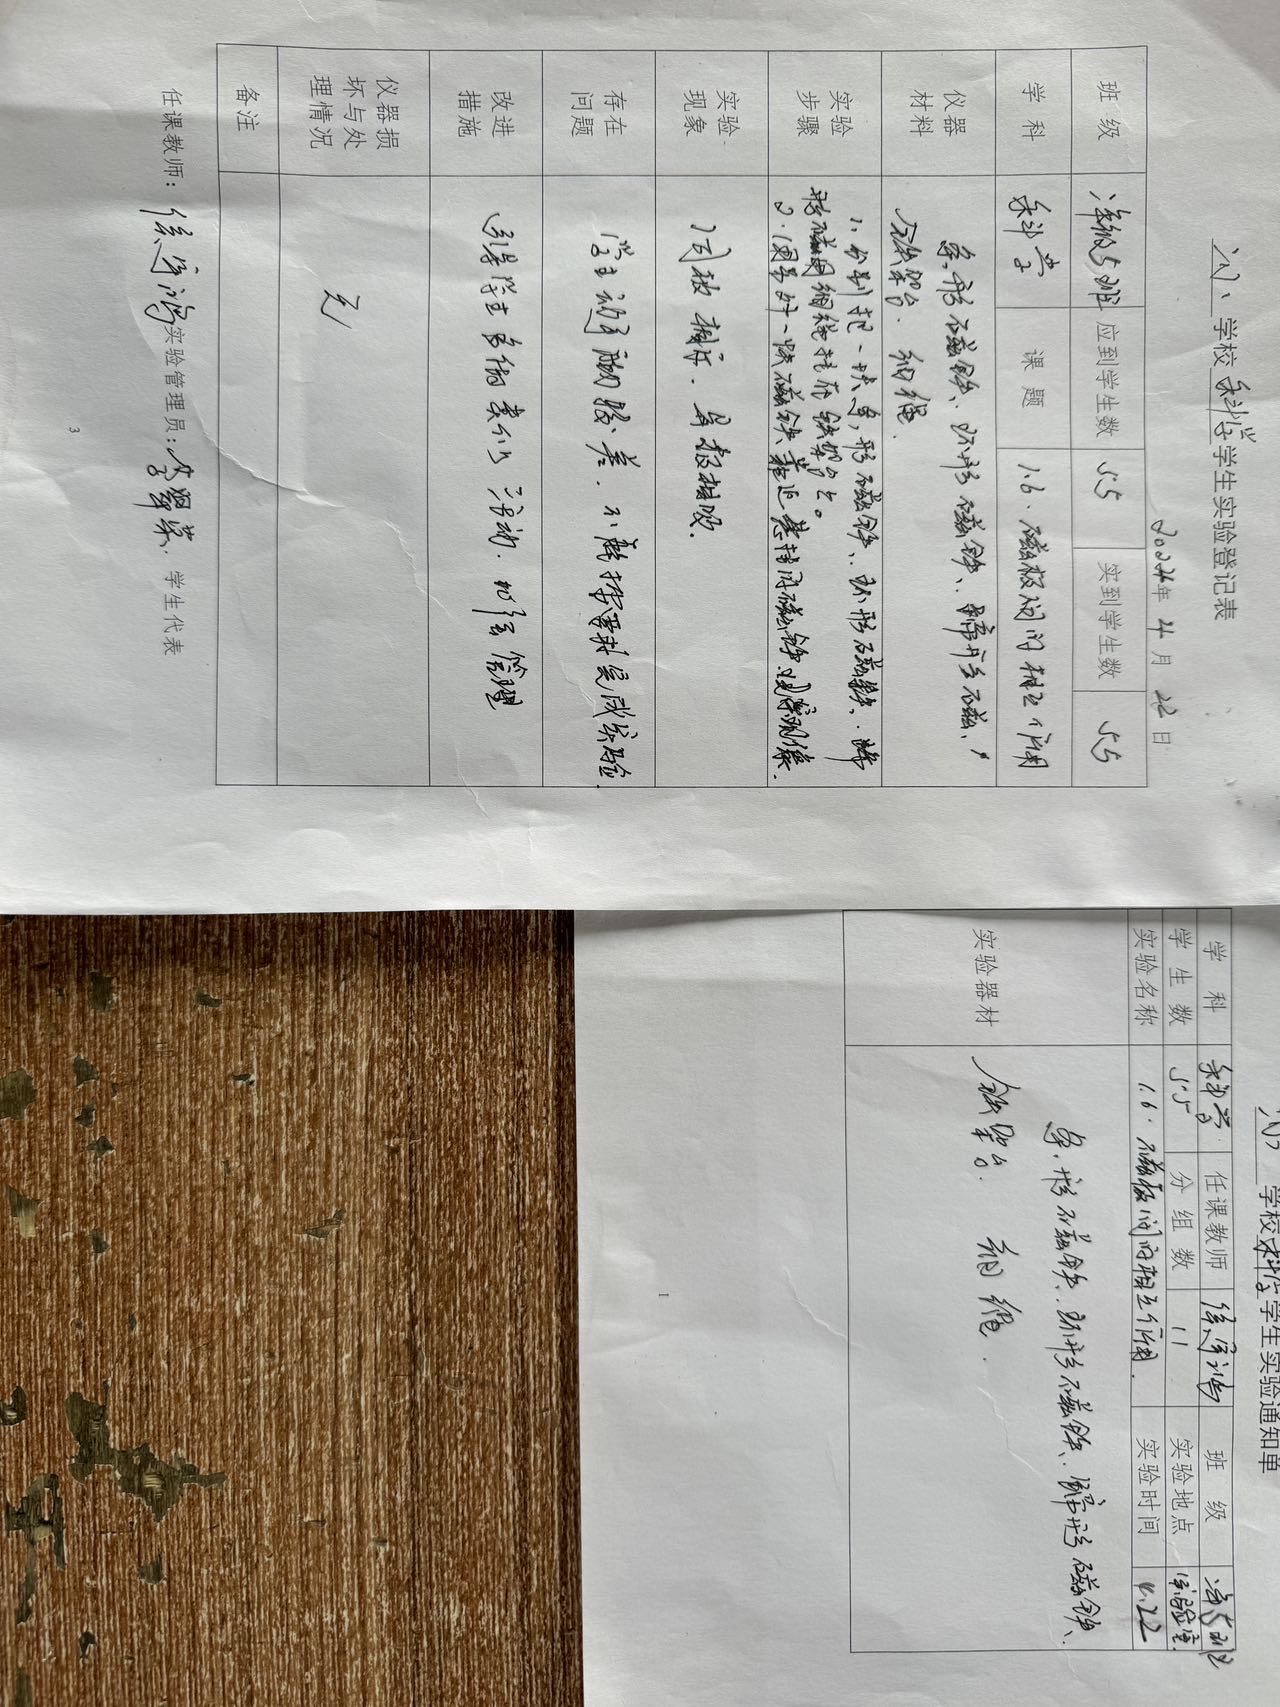 学校科学学生实验登记表
2024年4月22日
班级 二年级5班 应到学生数 55 实到学生数 55
学科 科学 课题 1.6.磁极间的相互作用
仪器材料 条形磁铁、环形磁铁、蹄形磁
铁架台.细绳.
实验步骤 1.分别把一块条形磁铁、环形磁铁、蹄
形磁用细绳挂在铁架台上。
2.用另外一块磁铁靠近悬挂的磁铁.观察现象.
实验现象 同极相斥.异极相吸.
存在问题 学生动手能力较差.不能按要求完成实验
改进措施 引导学生多做类似活动.加经管理
仪器损坏与处理情况 无
备注
任课教师: 实验管理员: 学生代表
3
学校科学学生实验通知单
学科 科学 任课教师 班级 二年5班
学生数 55 分组数 11 实验地点 实验室
实验名称 1.6.磁极间的相互作用. 实验时间 4.22
实验器材 条形磁铁.环形磁铁、蹄形磁铁、
铁架台. 细绳.
1